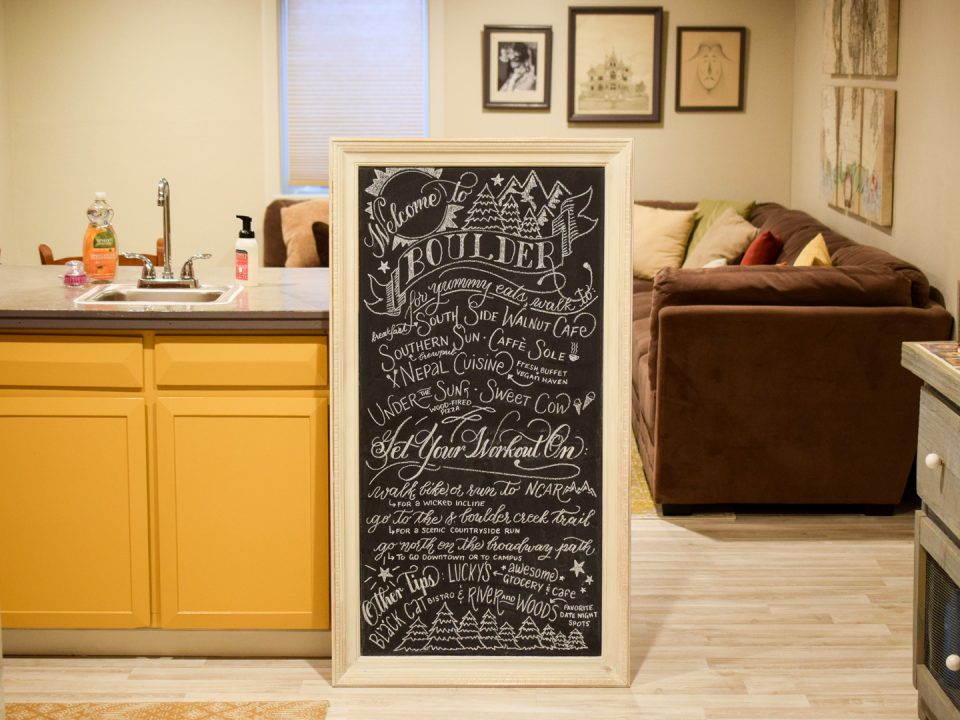 Welcome to
BOULDER
for yummy eats, walk to
breakfast SOUTH SIDE WALNUT CAFE
SOUTHERN SUN · CAFFÈ SOLE
brewpub
NEPAL CUISINE FRESH BUFFET
VEGAN HAVEN
UNDER THE SUN · SWEET COW
WOOD-FIRED
PIZZA
Get Your Workout On:
walk, bike, or run to NCAR
FOR A WICKED INCLINE
go to the s. boulder creek trail
FOR A SCENIC COUNTRYSIDE RUN
go north on the broadway path
TO GO DOWNTOWN OR TO CAMPUS
Other Tips: LUCKY'S awesome
GROCERY & CAFE
BLACK CAT BISTRO & RIVER AND WOODS FAVORITE
DATE NIGHT
SPOTS